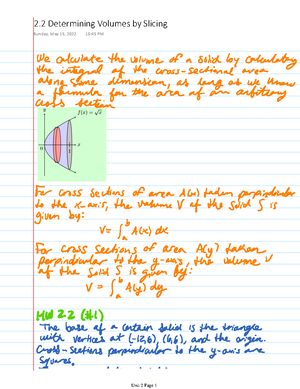 2.2 Determining Volumes by Slicing
Sunday, May 15, 2022 10:43 PM
We calculate the volume of a solid by calculating
the integral of the cross-sectional area
along some dimension, as long as we know
a formula for the area of an arbitrary
cross section
y
f(x) = √x
0
x
For cross sections of area A(x) taken perpendicular
to the x-axis, the volume V of the solid S is
given by:
V = ∫_a^b A(x) dx
For cross sections of area A(y) taken
perpendicular to the y-axis, the volume V
of the solid S is given by:
V = ∫_a^b A(y) dy
HW 2.2 (#1)
The base of a certain solid is the triangle
with vertices at (-12,6), (6,6), and the origin.
Cross-sections perpendicular to the y-axis are
squares.
Page 1